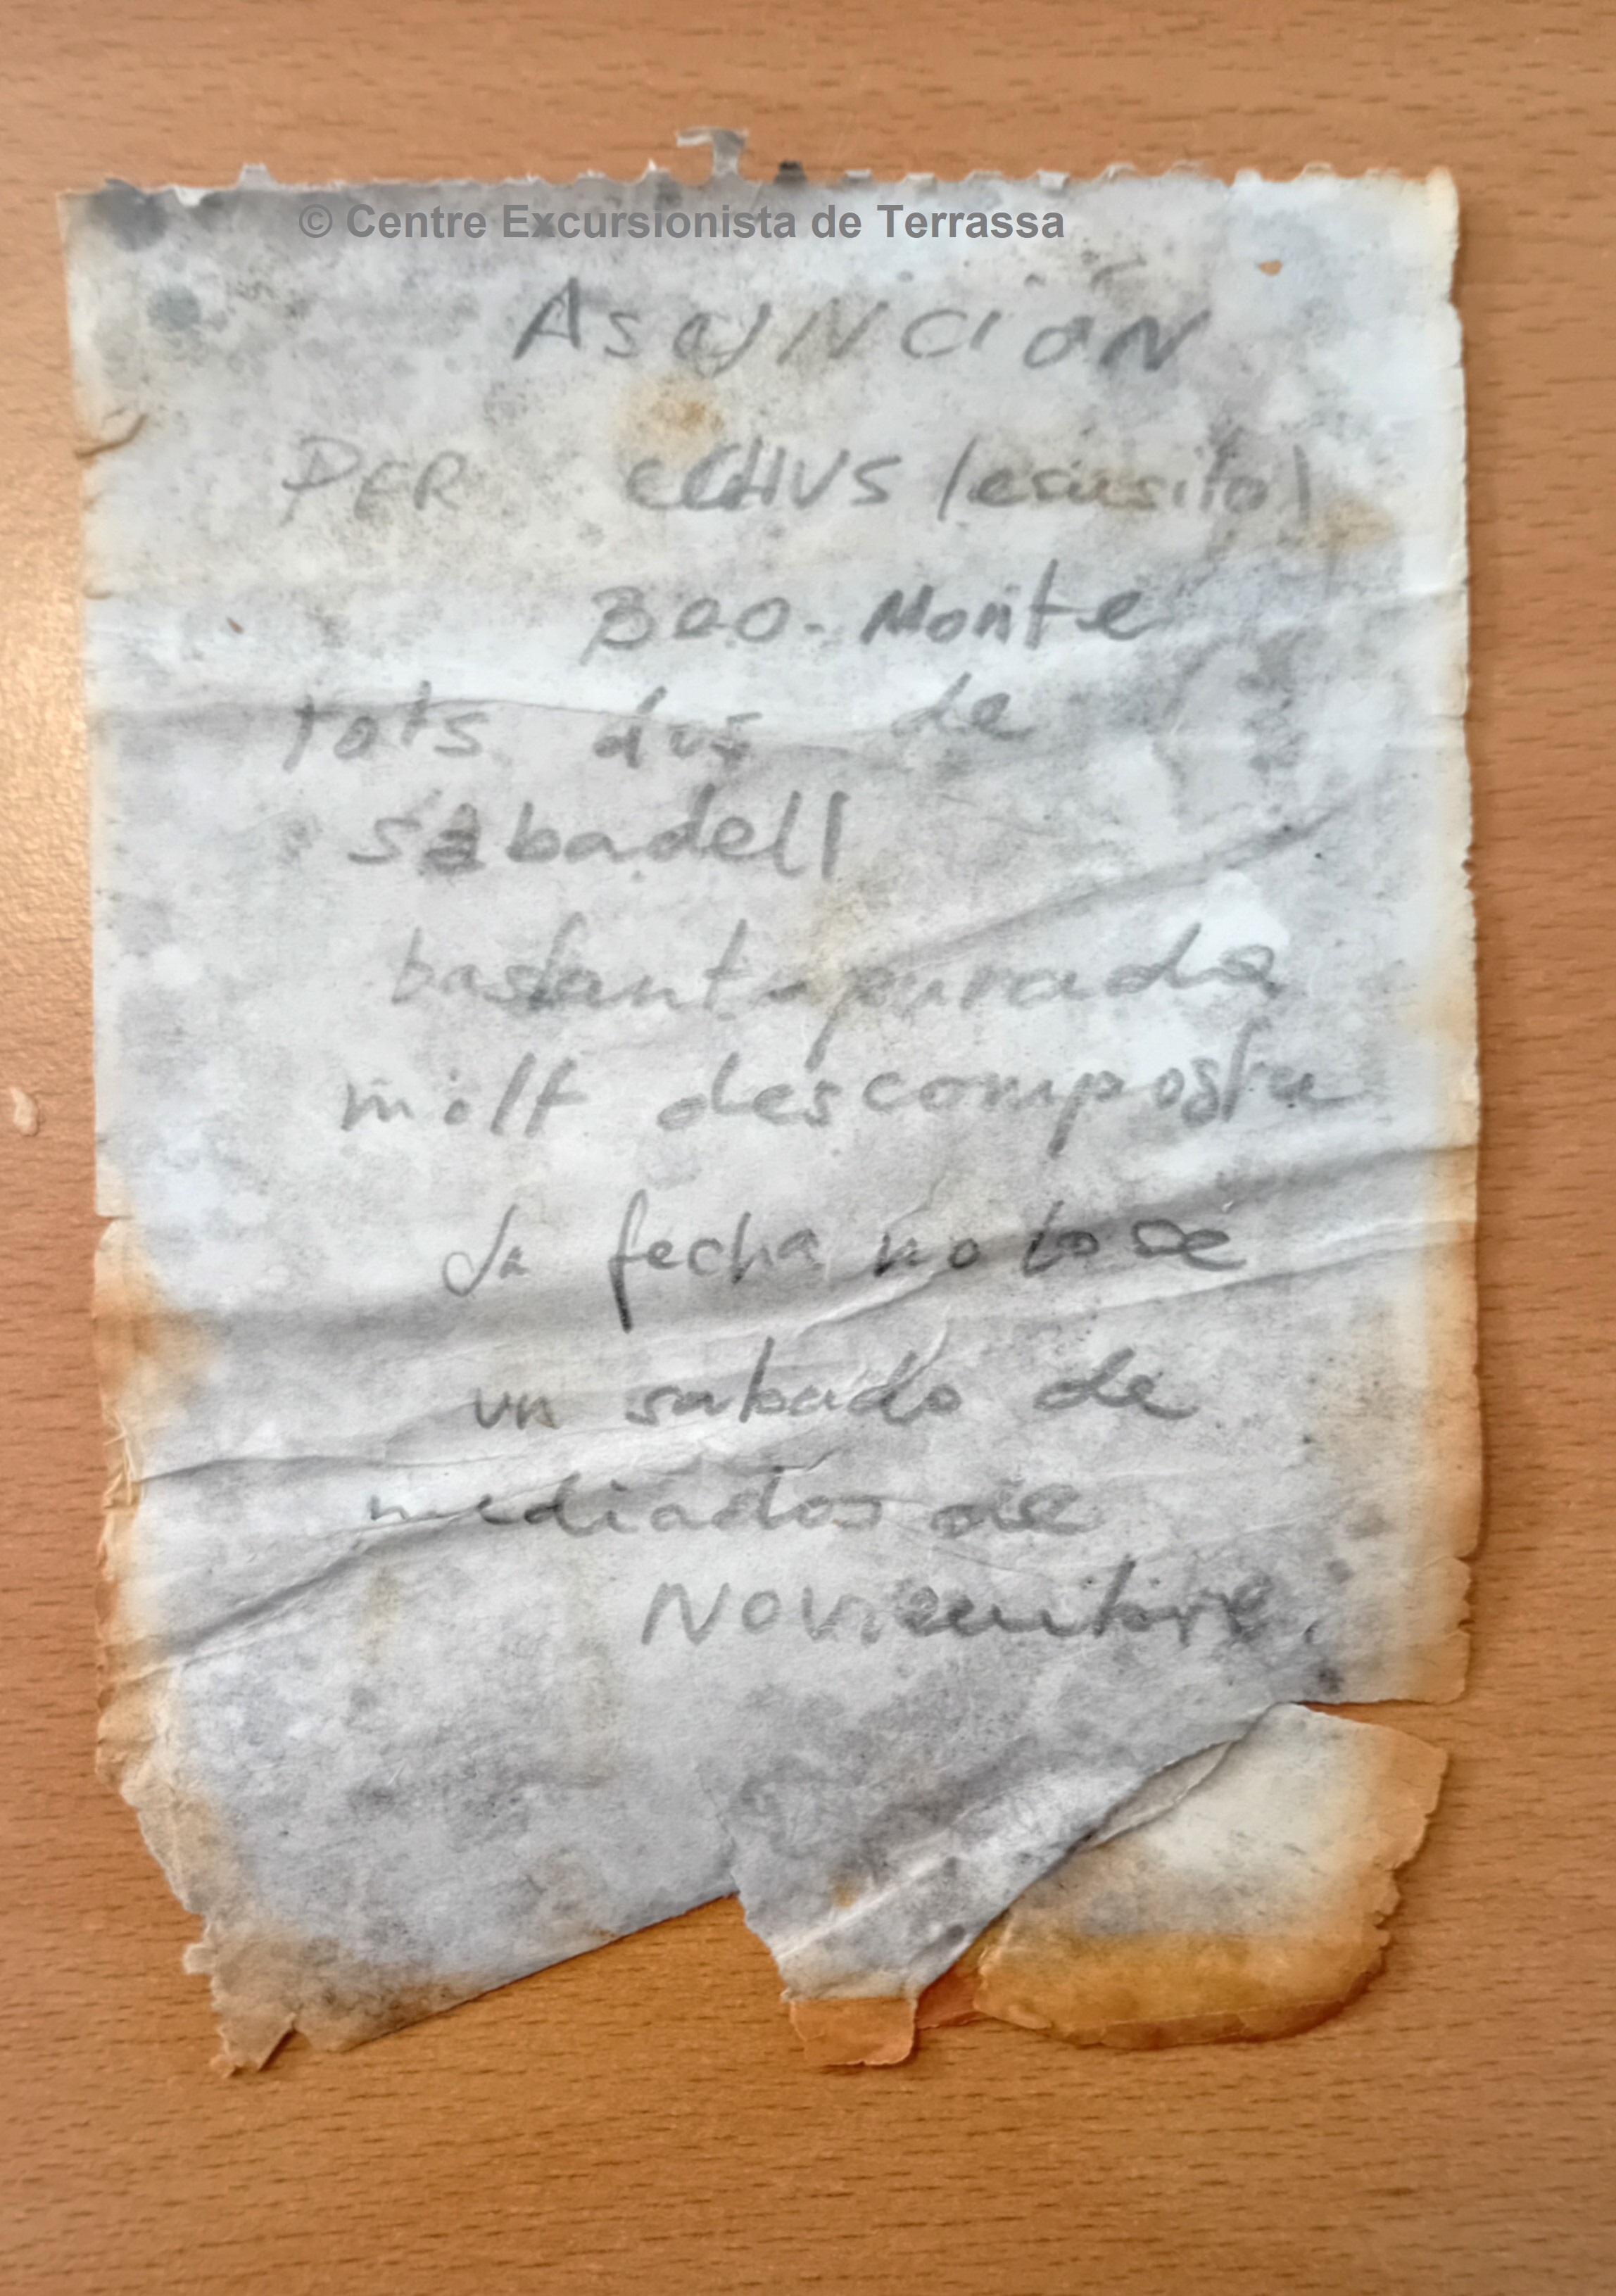 © Centre Excursionista de Terrassa
ASCYNCION
PER CHVS (esusito)
BAO-Monte
tots dus de
sabadell
bastant apurada
molt descomposta
la fecha no lo se
un sabado de
mediados de
Noviembre.